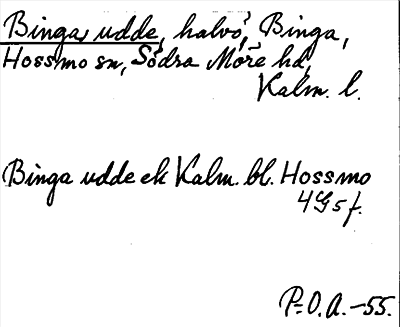 Binga udde, halvö, Binga,
Hossmo sn, Södra Möre hd,
Kalm. l.
Binga udde ek Kalm. bl. Hossmo
4G5f.
P-O.A. -55.